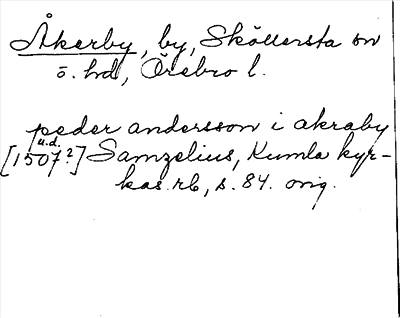 Åkerby, by, Sköllersta sn
ö. hd, Örebro l.
peder andersson i akraby
u.d.
[1507?] Samzelius, Kumla kyr-
kas rb, s. 84. orig.